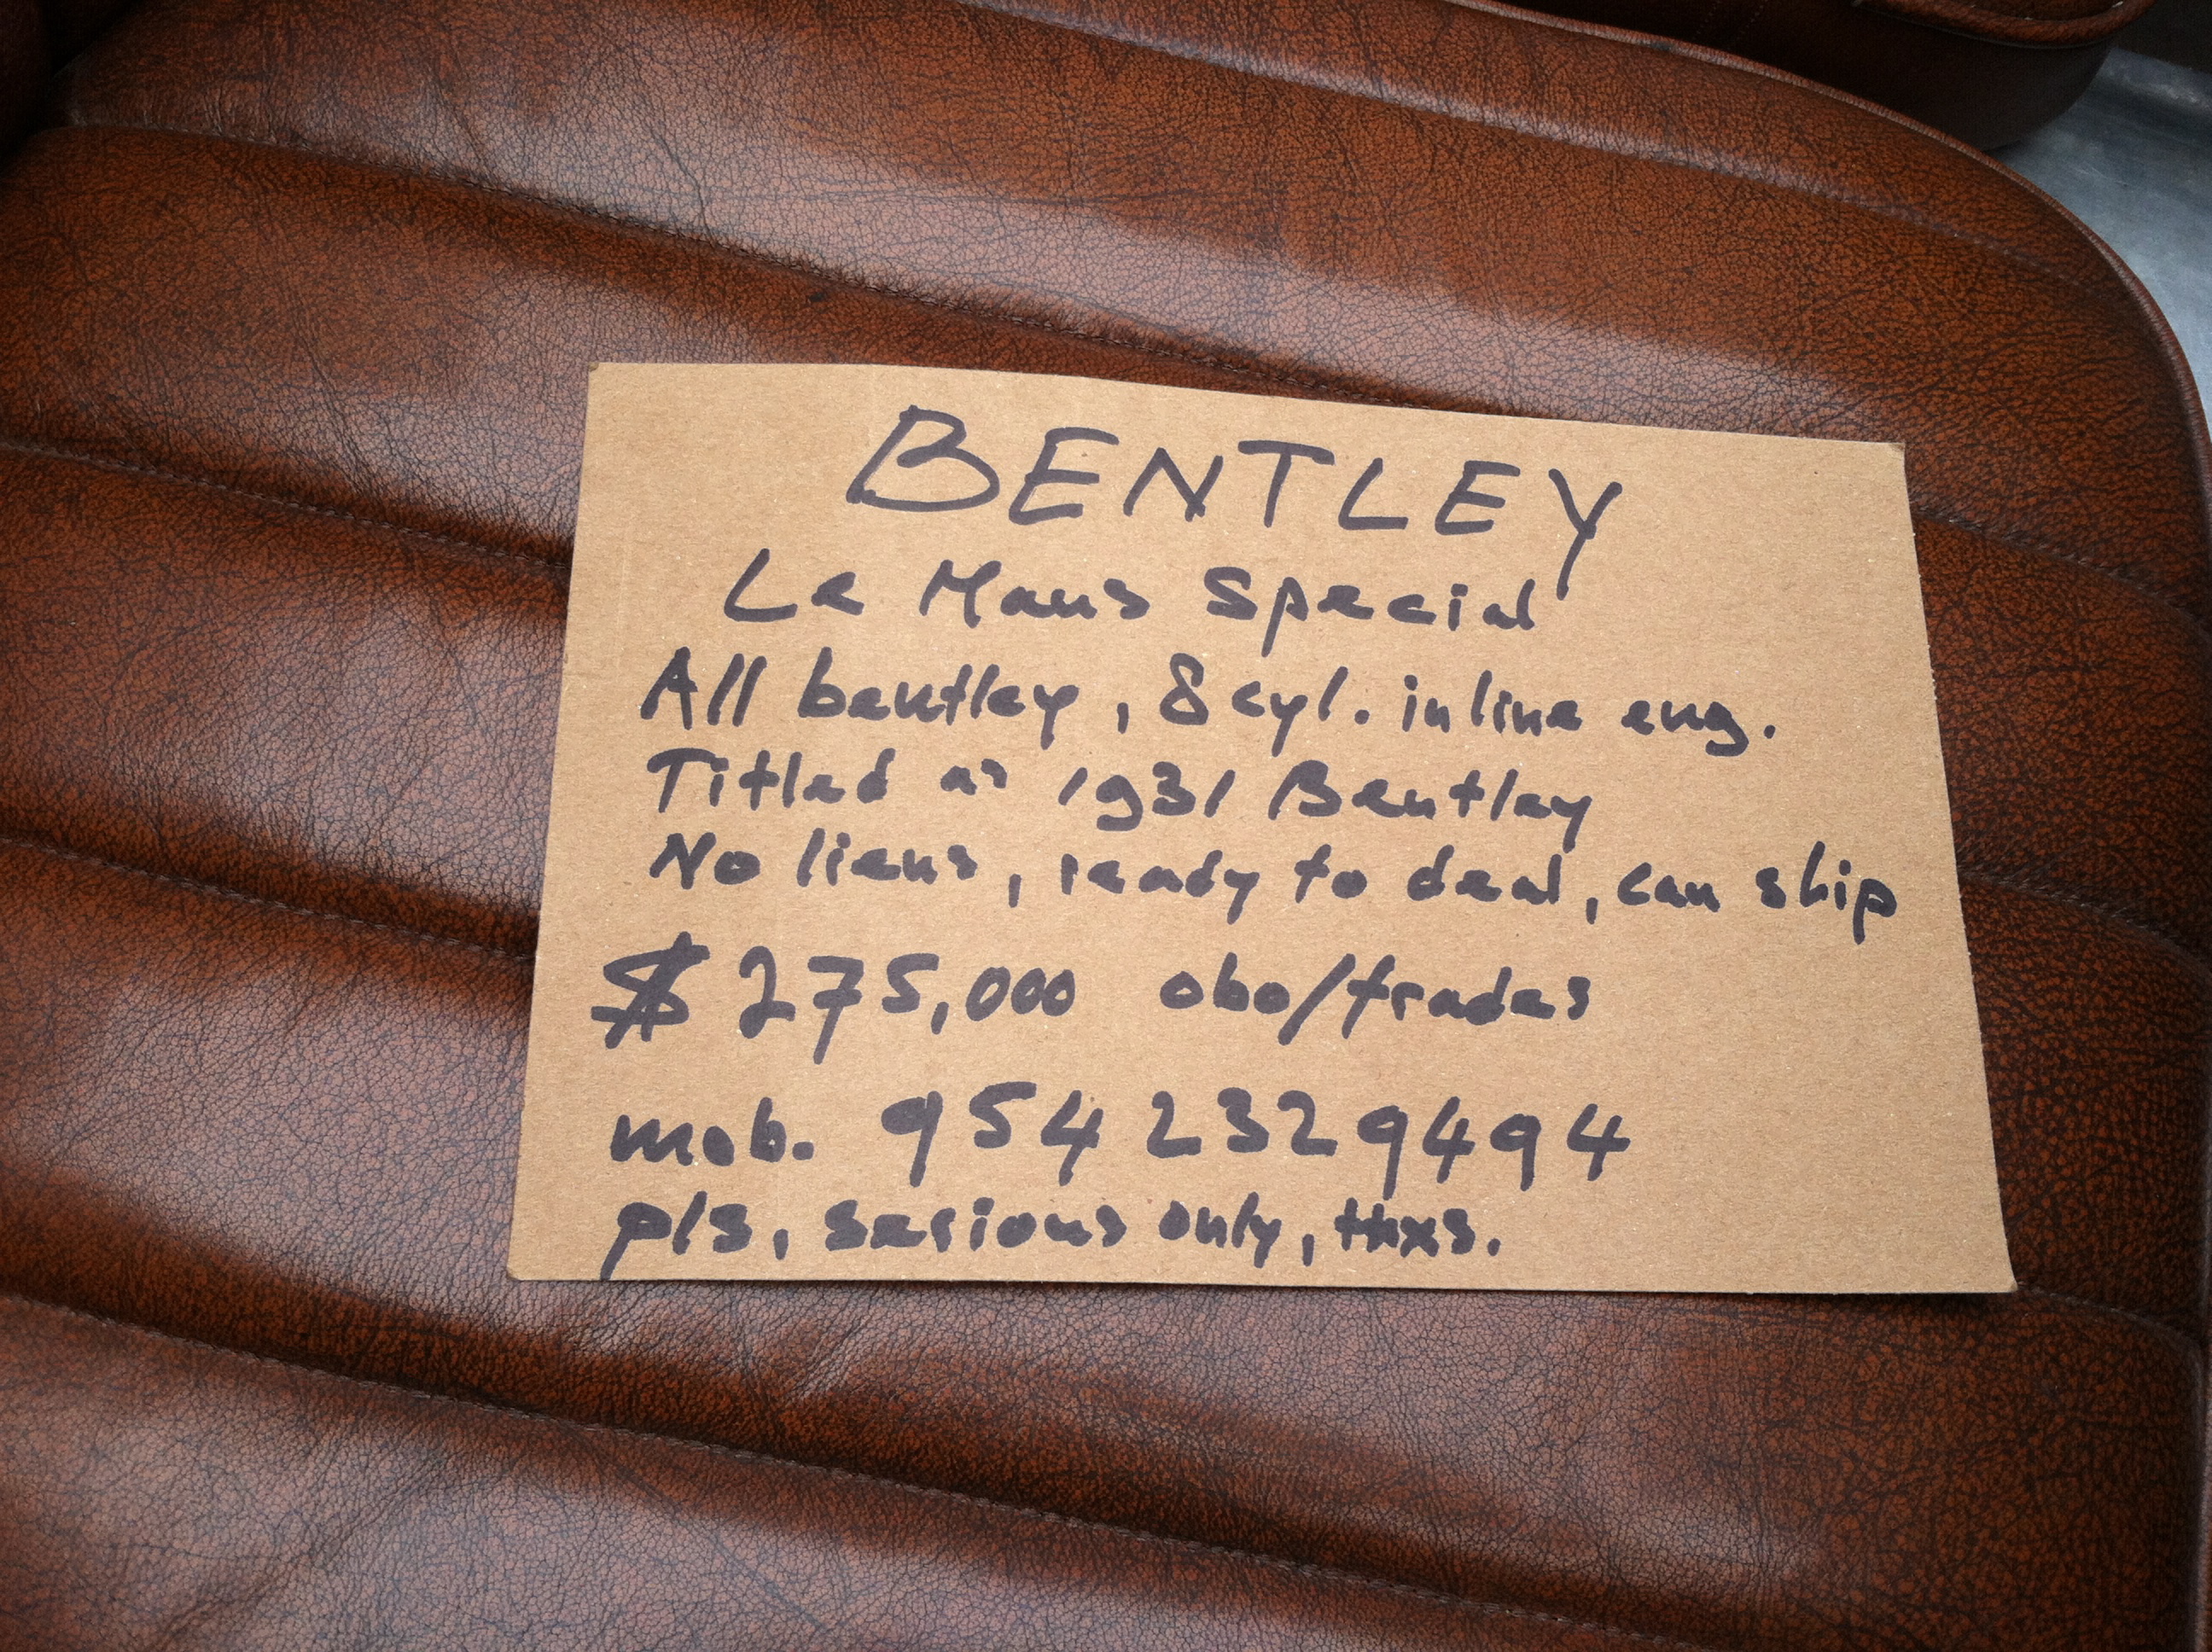 BENTLEY
Le Mans Special
All bentley, 8 cyl. inline eng.
Titled as 1931 Bentley
No liens, ready to deal, can ship
$ 275,000 obo/trades
mob. 954 232 9494
pls, serious only, thxs.